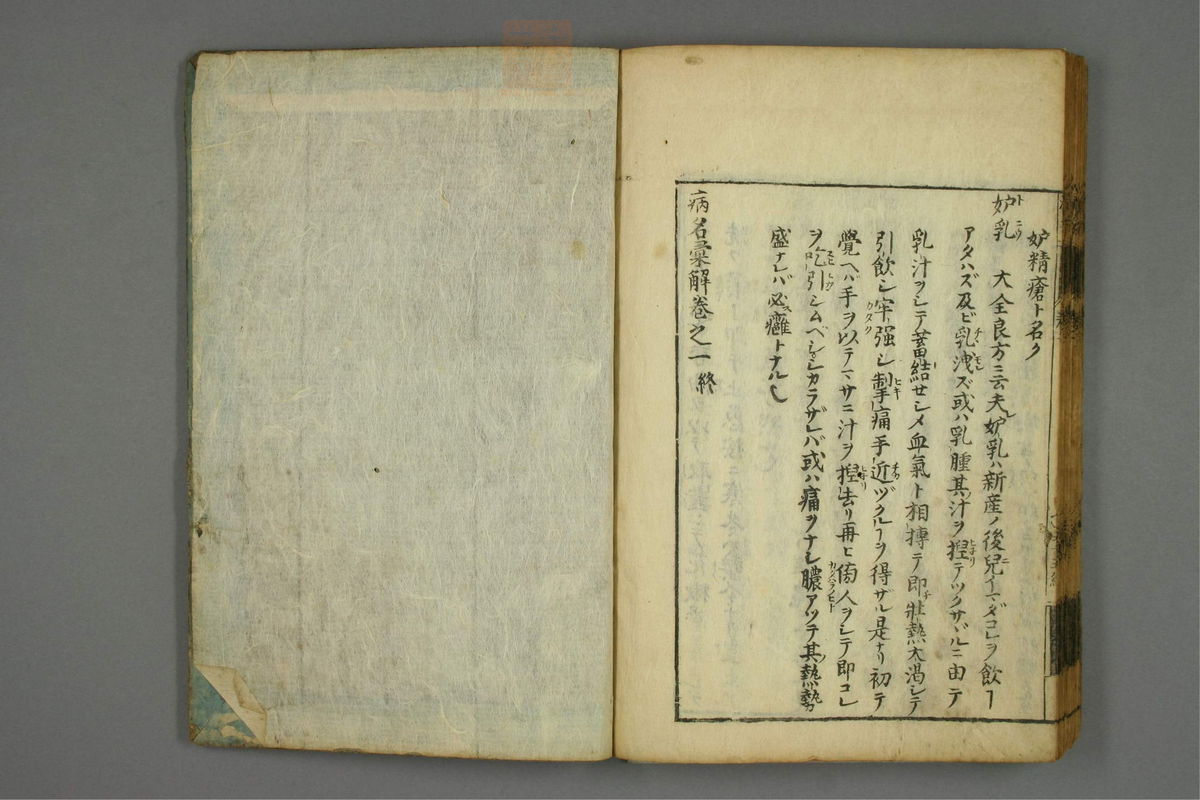 妒精瘡ト名ク
妒乳 大全良方ニ云夫レ妒乳ハ新産ノ後兒イマダコレヲ飲ヿ
アタハズ及ビ乳洩ズ或ハ乳腫其汁ヲ揑テツクサヾルニ由テ
乳汁ヲシテ蓄結セシメ血氣ト相搏テ即チ壯熱大渇シテ
引飲シ牢强シ掣痛手近ヅクルヿヲ得ザル是ナリ初テ
覺ヘバ手ヲ以テマサニ汁ヲ揑去リ再ヒ傍人ヲシテ即コレ
ヲ吮引シムベシシカラザレバ或ハ瘡ヲナシ膿アツテ其熱勢
盛ナレバ必ス癰トナル也
病名彙解巻之一終